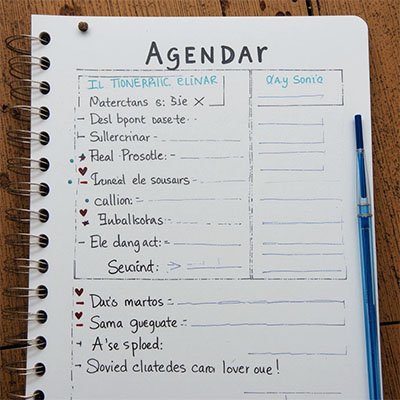 AGENDAR
IL TIONERAIIC ELINAR
ɑʌy sonia
Materctans s: Sie ×
Desl bpont oaste
Sullercrinar -
Real Prosotle: -
ele sousairs -
callion: -
Euballkotas -
Ele dang act: -
Sewind:
Daro martos -
Sama gueguate -
A'se sploed:
Sovied cluatedes caro lover oue!